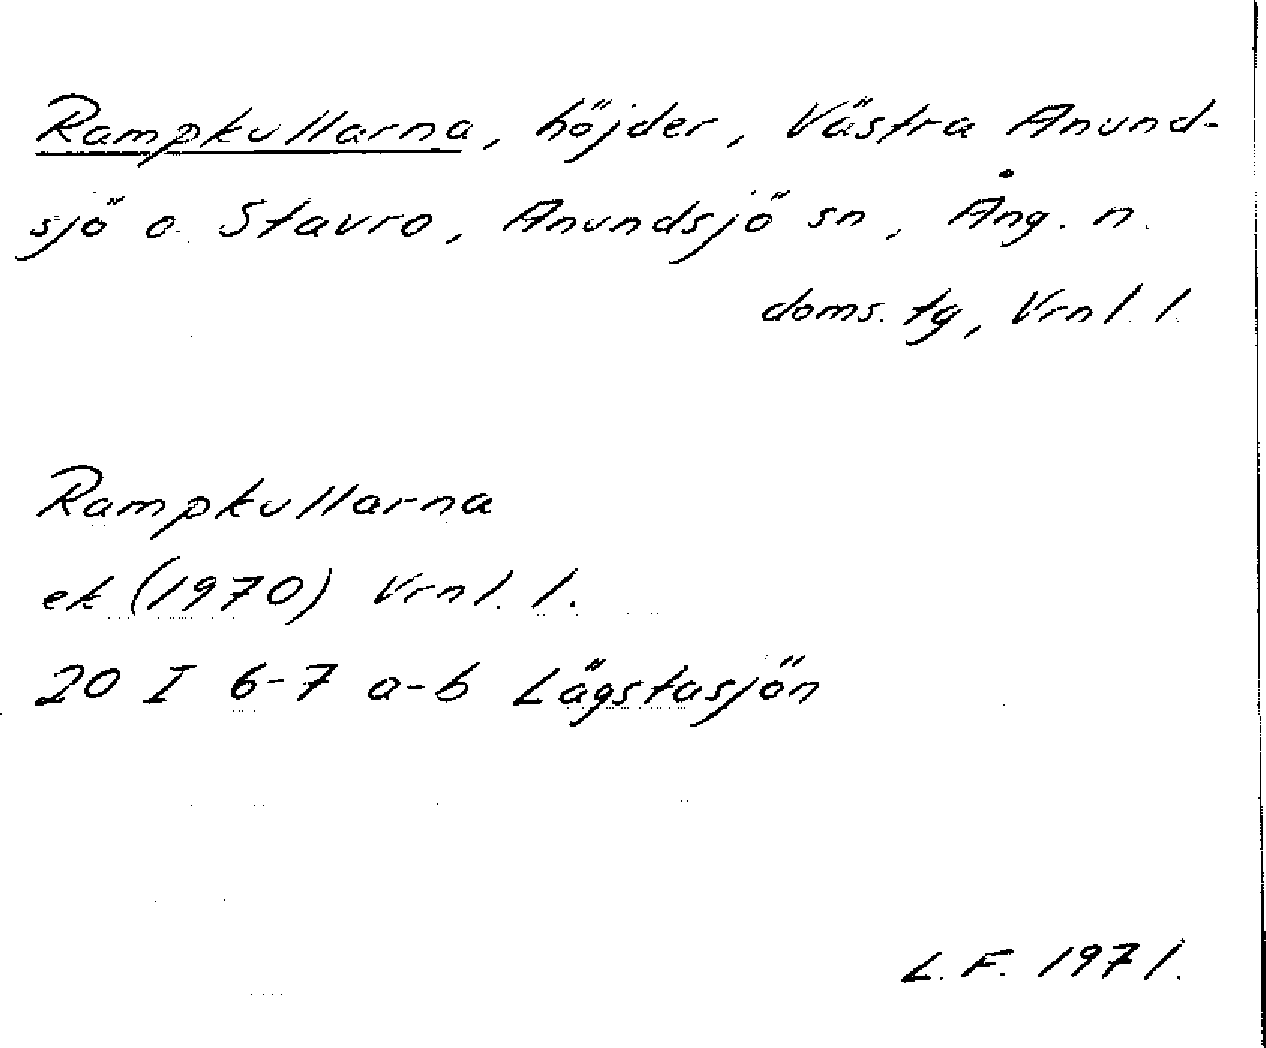 Rampkullarna, höjder, Västra Anund-
sjö o. Stavro, Anundsjö sn, Ång. n.
doms. tg, Vrnl. l.
Rampkullarna
ek (1970) Vrnl. l.
20 I 6-7 a-b Lägstasjön
L. F. 1971.